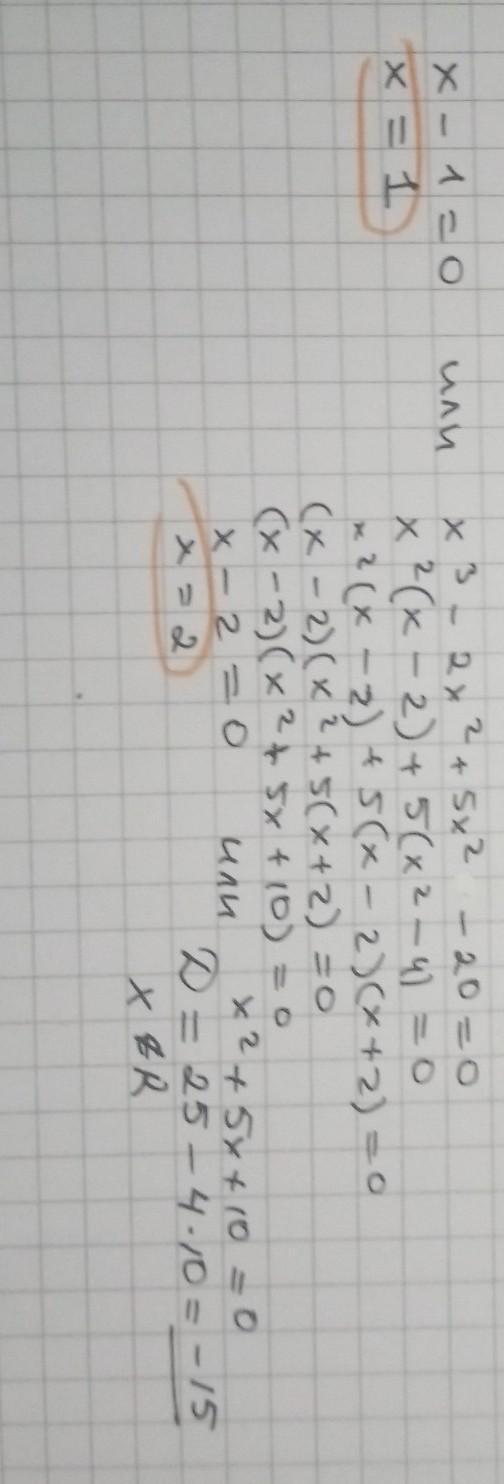 x - 1 = 0 или x³ - 2x² + 5x² - 20 = 0
x = 1 x²(x - 2) + 5(x² - 4) = 0
x²(x - 2) + 5(x - 2)(x + 2) = 0
(x - 2)(x² + 5(x + 2) = 0
(x - 2)(x² + 5x + 10) = 0
x - 2 = 0 или x² + 5x + 10 = 0
x = 2 D = 25 - 4·10 = -15
x ∉ R